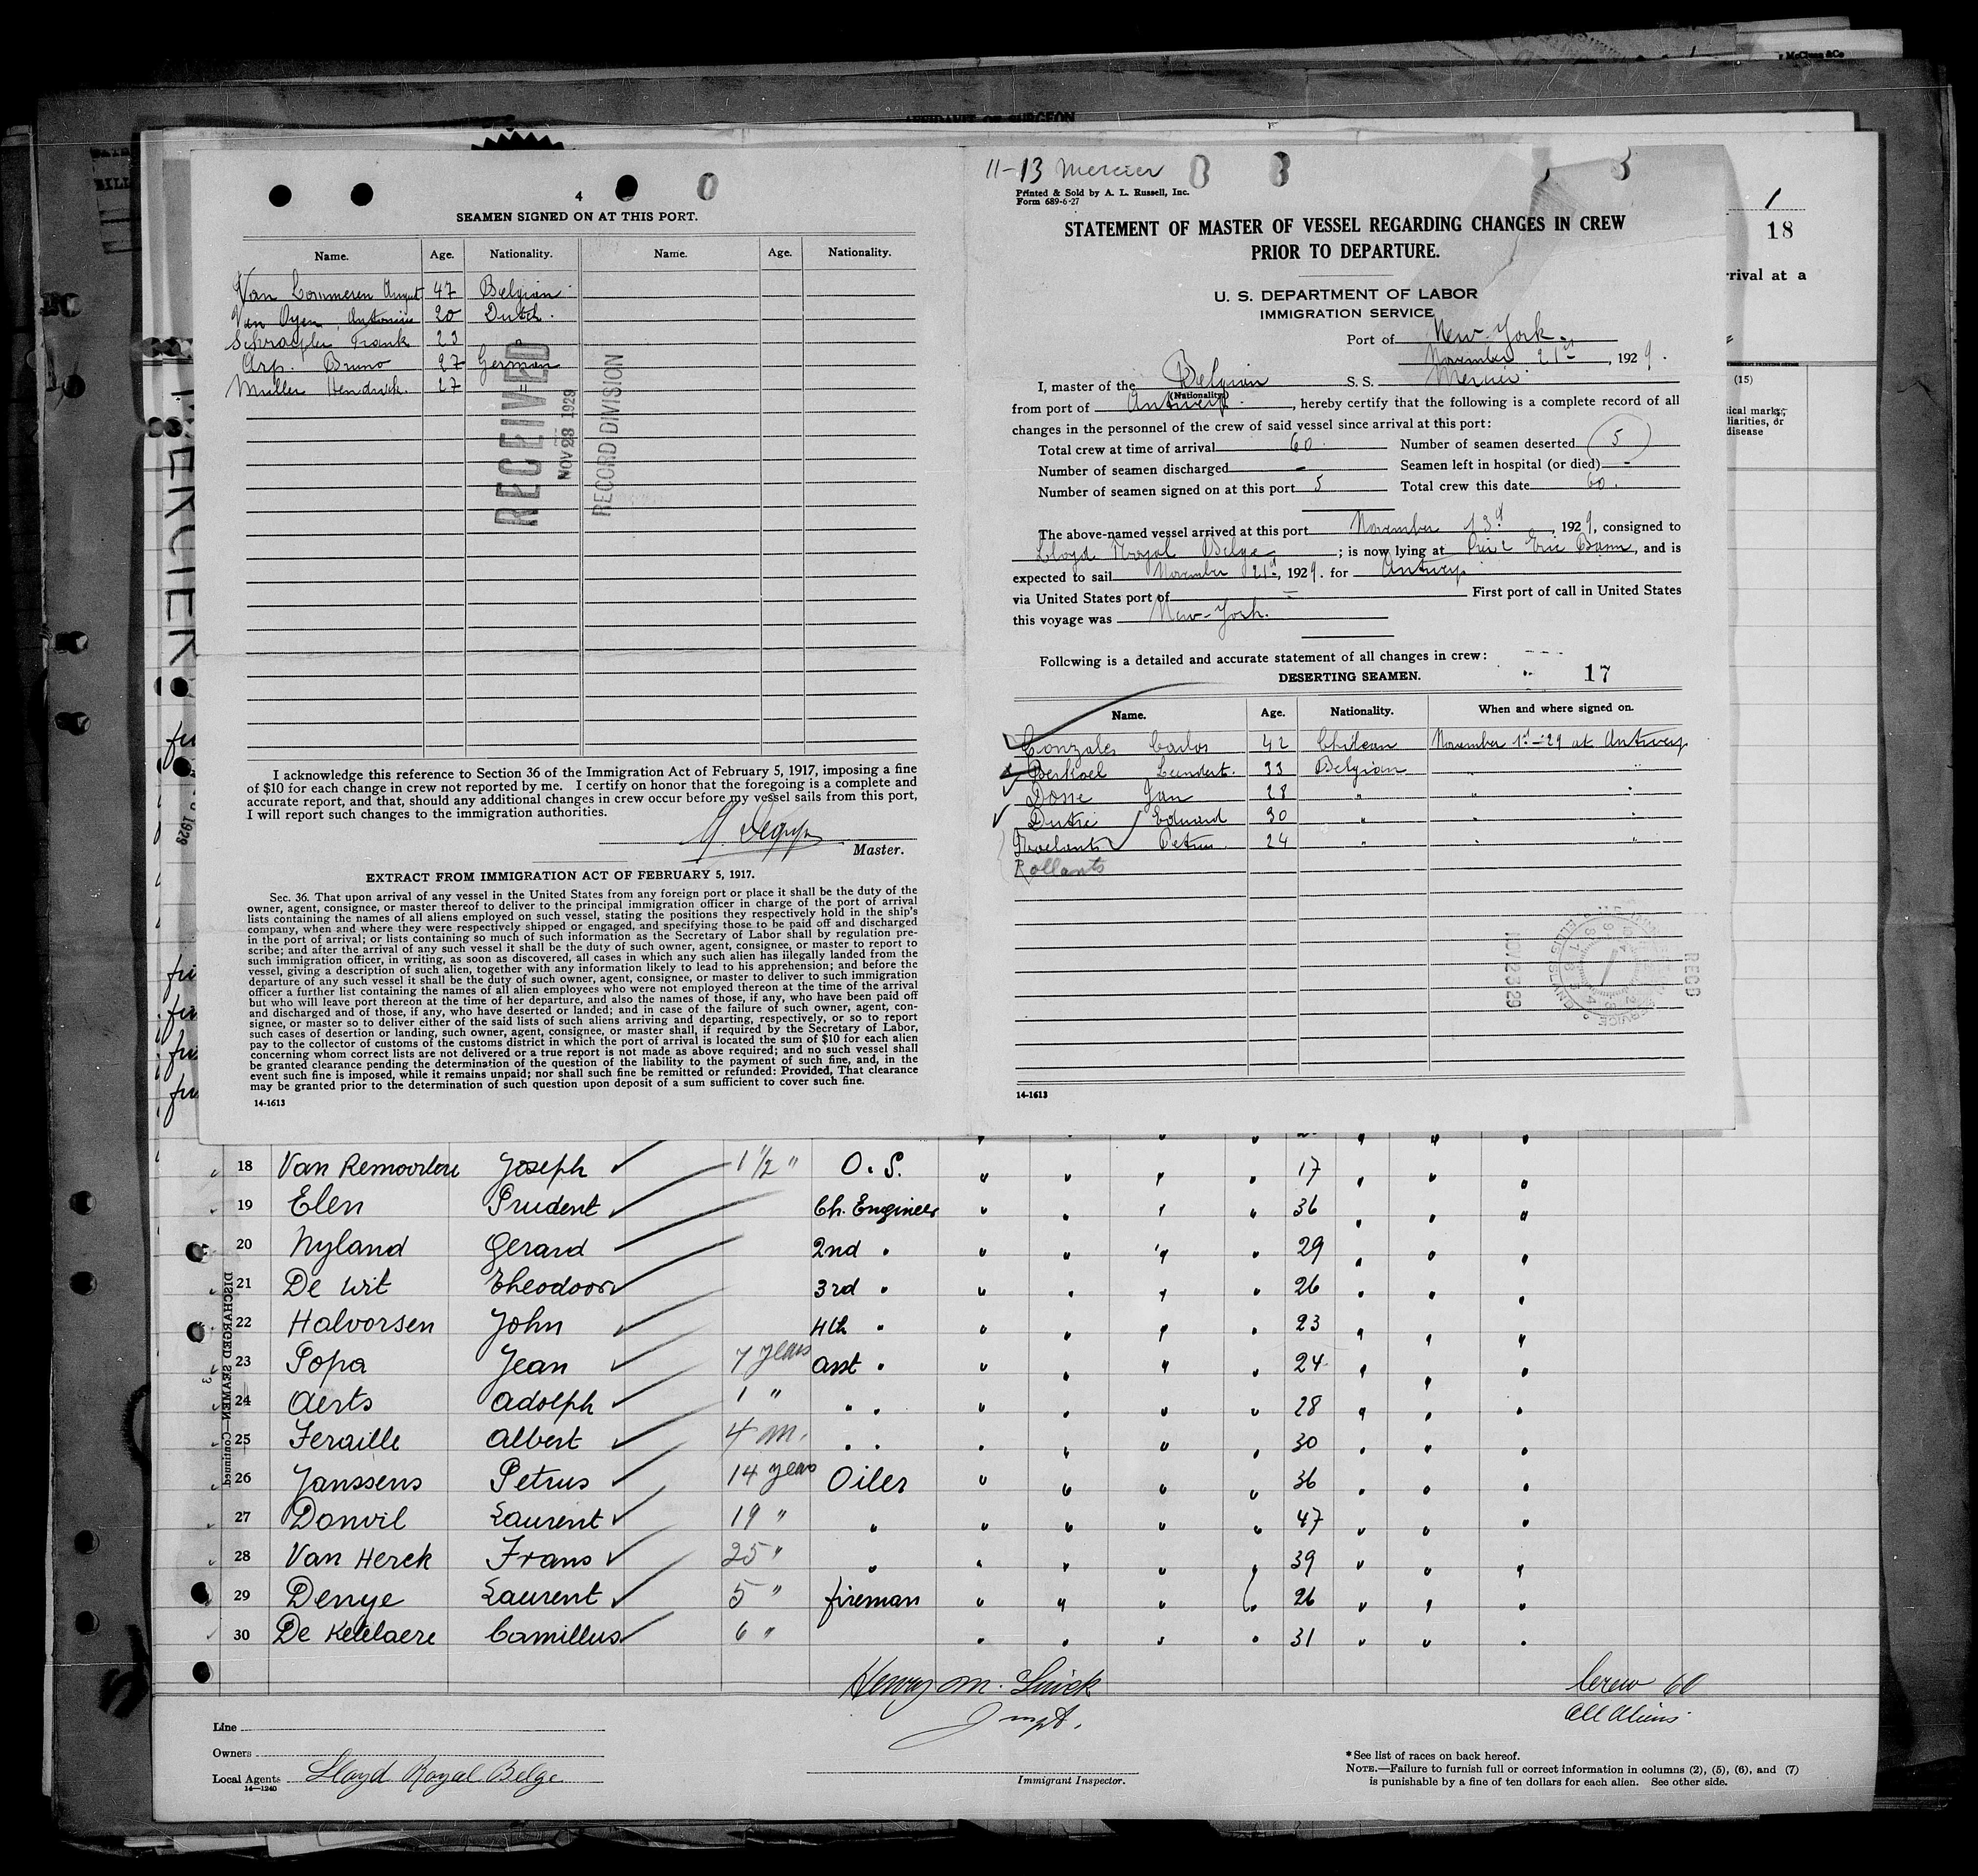 McClung & Co
AFFIDAVIT OF SURGEON
4 0
SEAMEN SIGNED ON AT THIS PORT.
Name. Age. Nationality. Name. Age. Nationality.
Van Lommeren August 47 Belgian
Van Oyen, Antonius 20 Dutch.
Schraepler Frank 23 "
Arp. Bruno 27 German
Muller Hendrick. 27 "
RECEIVED
NOV 23 1929
RECORD DIVISION
I acknowledge this reference to Section 36 of the Immigration Act of February 5, 1917, imposing a fine
of $10 for each change in crew not reported by me. I certify on honor that the foregoing is a complete and
accurate report, and that, should any additional changes in crew occur before my vessel sails from this port,
I will report such changes to the immigration authorities.
Master.
EXTRACT FROM IMMIGRATION ACT OF FEBRUARY 5, 1917.
Sec. 36. That upon arrival of any vessel in the United States from any foreign port or place it shall be the duty of the
owner, agent, consignee, or master thereof to deliver to the principal immigration officer in charge of the port of arrival
lists containing the names of all aliens employed on such vessel, stating the positions they respectively hold in the ship's
company, when and where they were respectively shipped or engaged, and specifying those to be paid off and discharged
in the port of arrival; or lists containing so much of such information as the Secretary of Labor shall by regulation pre-
scribe; and after the arrival of any such vessel it shall be the duty of such owner, agent, consignee, or master to report to
such immigration officer, in writing, as soon as discovered, all cases in which any such alien has illegally landed from the
vessel, giving a description of such alien, together with any information likely to lead to his apprehension; and before the
departure of any such vessel it shall be the duty of such owner, agent, consignee, or master to deliver to such immigration
officer a further list containing the names of all alien employees who were not employed thereon at the time of the arrival
but who will leave port thereon at the time of her departure, and also the names of those, if any, who have been paid off
and discharged and of those, if any, who have deserted or landed; and in case of the failure of such owner, agent, con-
signee, or master so to deliver either of the said lists of such aliens arriving and departing, respectively, or so to report
such cases of desertion or landing, such owner, agent, consignee, or master shall, if required by the Secretary of Labor,
pay to the collector of customs of the customs district in which the port of arrival is located the sum of $10 for each alien
concerning whom correct lists are not delivered or a true report is not made as above required; and no such vessel shall
be granted clearance pending the determination of the question of the liability to the payment of such fine, and, in the
event such fine is imposed, while it remains unpaid; nor shall such fine be remitted or refunded: Provided, That clearance
may be granted prior to the determination of such question upon deposit of a sum sufficient to cover such fine.
14-1613
11-13 Mercier
Printed & Sold by A. L. Russell, Inc.
Form 689-6-27
STATEMENT OF MASTER OF VESSEL REGARDING CHANGES IN CREW
PRIOR TO DEPARTURE.
U. S. DEPARTMENT OF LABOR
IMMIGRATION SERVICE
Port of New-York.
November 21st, 1929.
I, master of the Belgian S. S. Mercier
(Nationality)
from port of Antwerp., hereby certify that the following is a complete record of all
changes in the personnel of the crew of said vessel since arrival at this port:
Total crew at time of arrival 60. Number of seamen deserted 5
Number of seamen discharged - Seamen left in hospital (or died) -
Number of seamen signed on at this port 5 Total crew this date 60.
The above-named vessel arrived at this port November 13d, 1929, consigned to
Lloyd Royal Belge; is now lying at Pier 2 Erie Basin, and is
expected to sail November 21st, 1929. for Antwerp
via United States port of - First port of call in United States
this voyage was New-York.
Following is a detailed and accurate statement of all changes in crew:
DESERTING SEAMEN.
17
Name. Age. Nationality. When and where signed on.
Gonzales Carlos 42 Chilean November 1st-29 at Antwerp
Berkoel Leendert. 33 Belgian " "
Dosse Jan 28 " " "
Dutrie Eduard 30 " " "
Roelants Petrus 24 " " "
Rollants
RECD
NOV 23 29
ELLIS ISLAND
14-1613
1
18
rrival at a
(15)
sical marks,
liarities, or
disease
MERCIER
1929
DISCHARGED SEAMEN—Continued
18 Van Remoortere Joseph 1 1/2 " O. S. " " " " 17 " " "
19 Elen Prudent Ch. Engineer " " " " 36 " " "
20 Nyland Gerard 2nd " " " " " 29 " " "
21 De Wit Theodoor 3rd " " " " " 26 " " "
22 Halvorsen John 4th " " " " " 23 " " "
23 Popa Jean 7 years asst " " " " " 24 " " "
24 Aerts Adolph 1 " " " " " " " 28 " " "
25 Feraille Albert 4 m. " " " " " " 30 " " "
26 Janssens Petrus 14 years Oiler " " " " 36 " " "
27 Donvil Laurent 19 " " " " " " 47 " " "
28 Van Herck Frans 25 " " " " " " 39 " " "
29 Denye Laurent 5 " fireman " " " " 26 " " "
30 De Ketelaere Camillus 6 " " " " " 31 " " "
Crew 60
All Aliens
Line
Owners
Local Agents Lloyd Royal Belge
14—1240
Immigrant Inspector.
* See list of races on back hereof.
NOTE.—Failure to furnish full or correct information in columns (2), (5), (6), and (7)
is punishable by a fine of ten dollars for each alien. See other side.